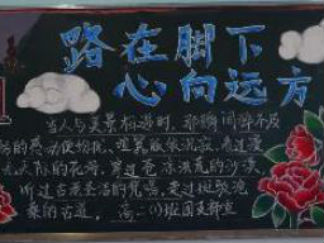 路在脚下
心向远方
当人与美景相遇时,那瞬间猝不及
防的感动便恰
无天际的花海,穿过苍凉洪荒的沙漠
听过古老圣洁的梵唱,走过斑驳沧
桑的古道。高二(1)班团支部宣